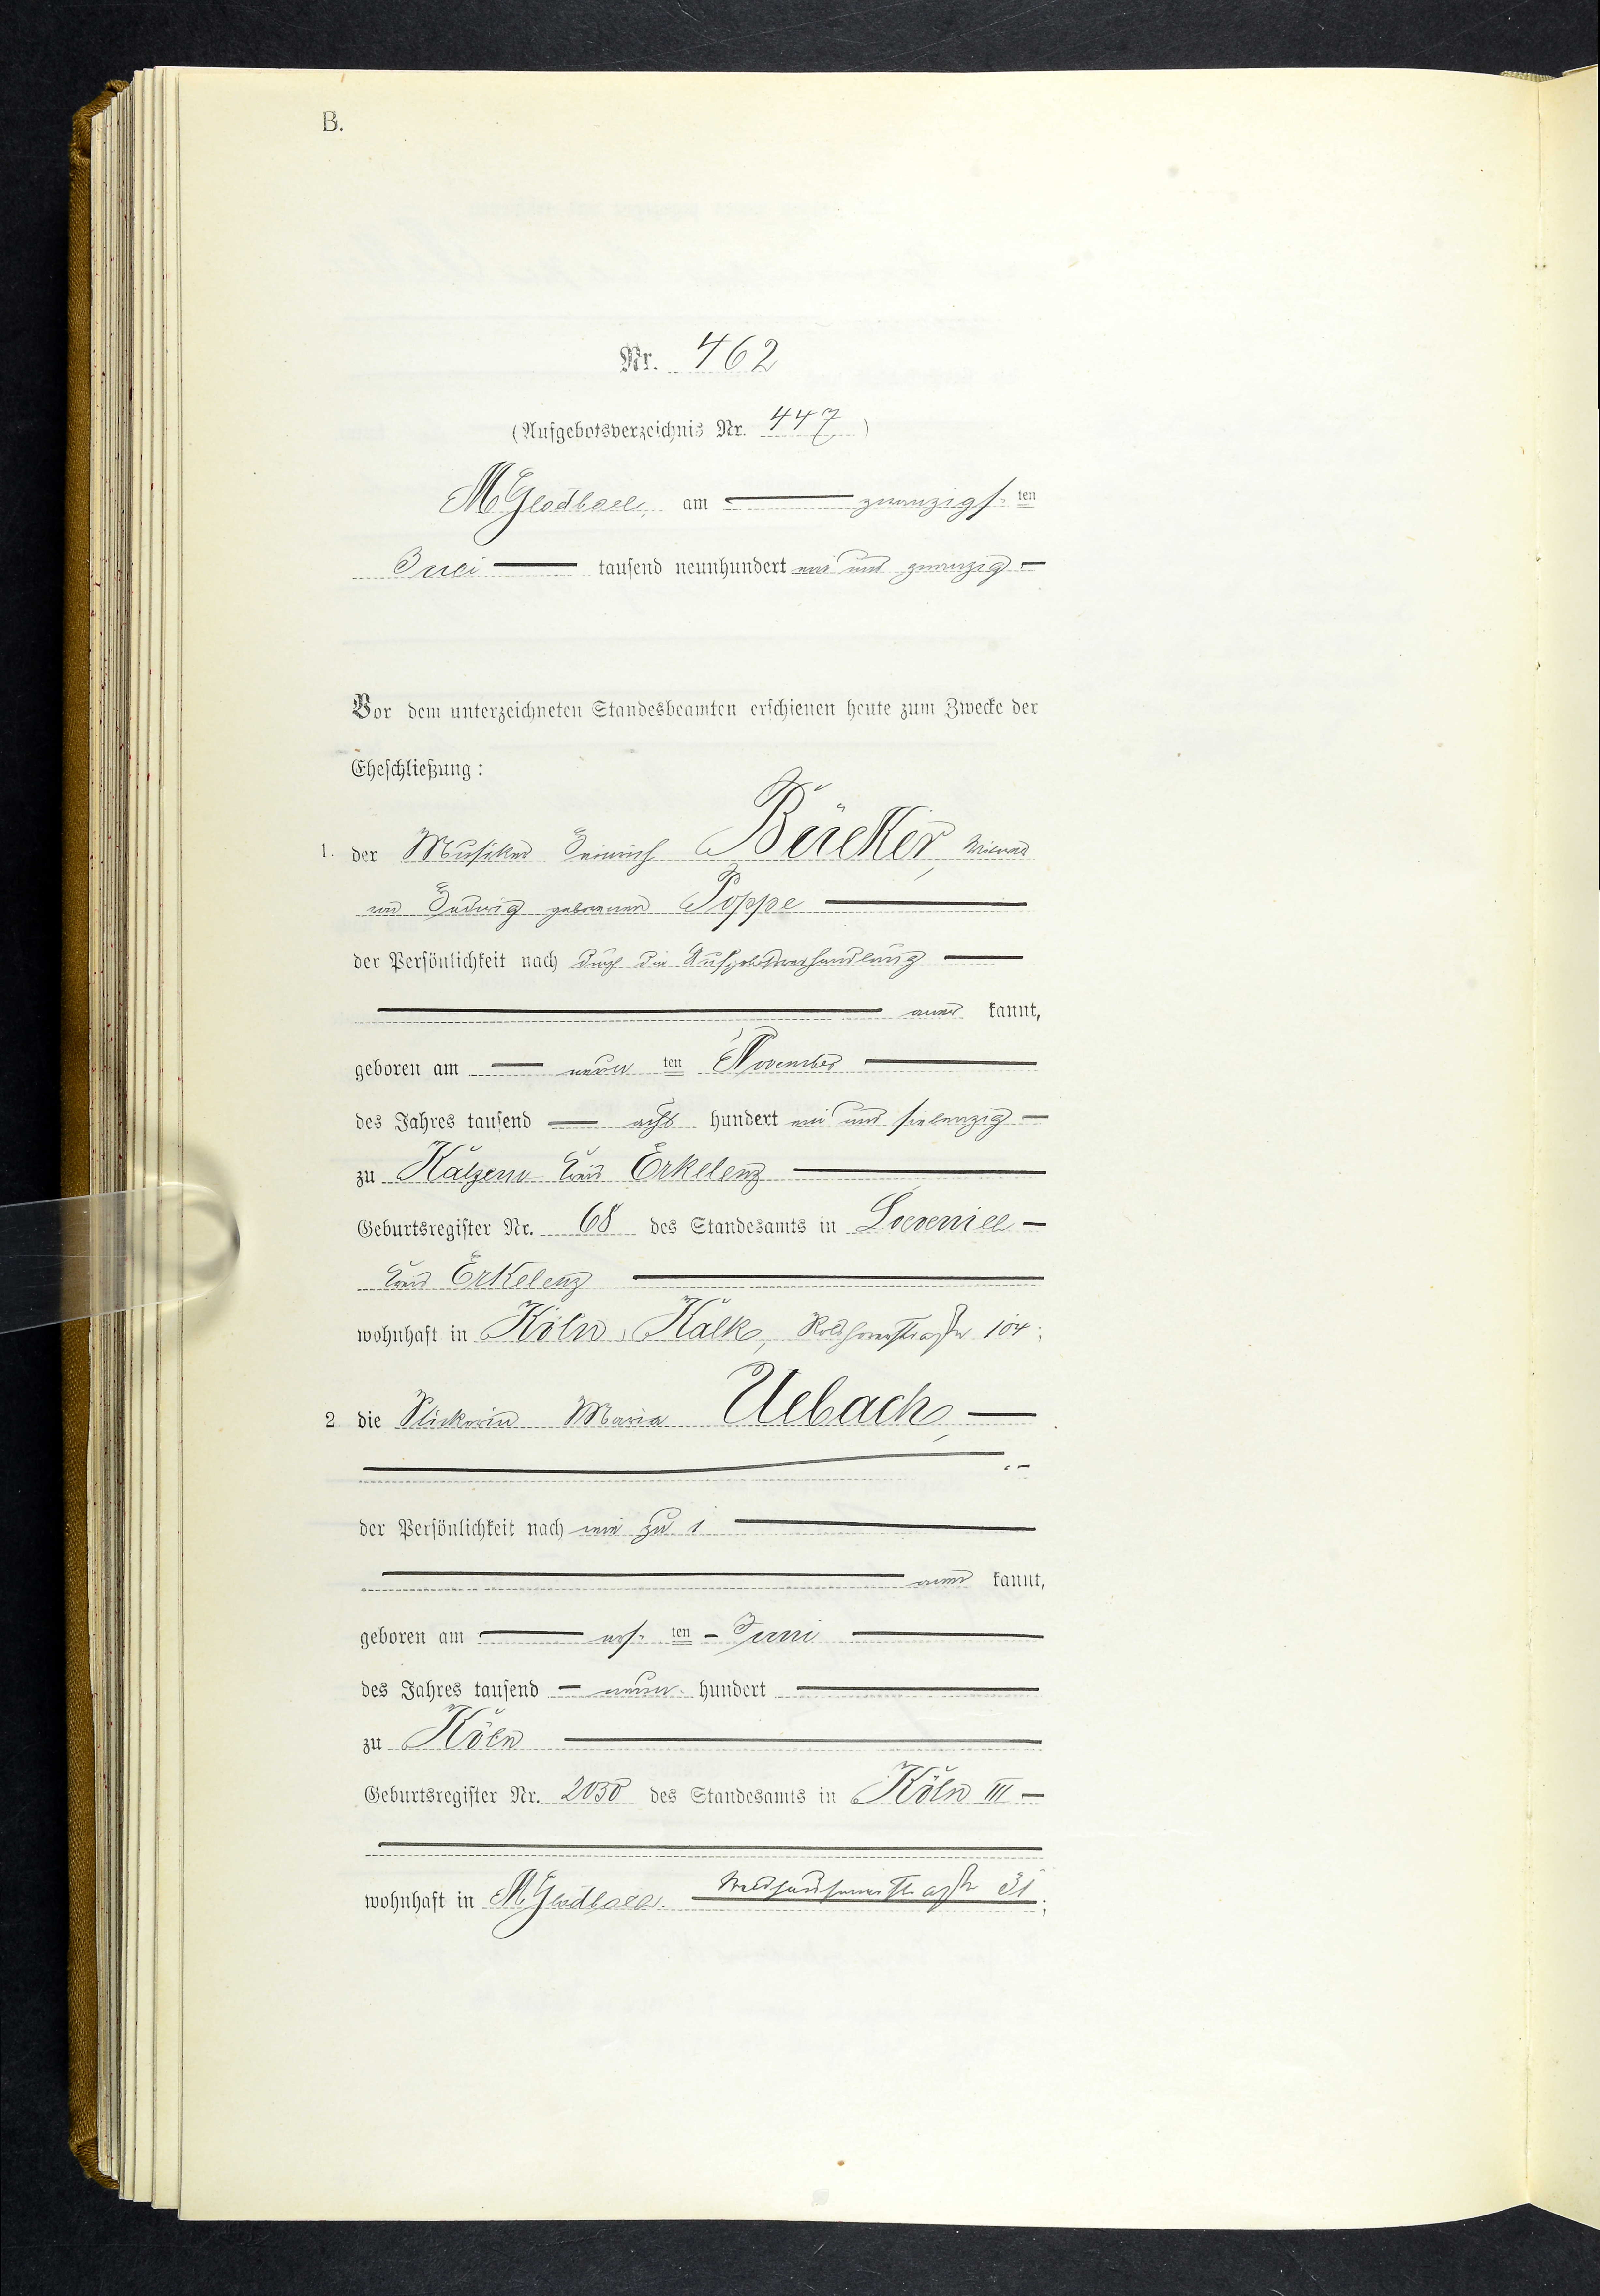 B.
Nr. 462
(Aufgebotsverzeichnis Nr. 447)
M Gladbach, am — zwanzigsten
Juli — tausend neunhundert ein und zwanzig —
Vor dem unterzeichneten Standesbeamten erschienen heute zum Zwecke der
Eheschließung:
1. der Musiker Heinrich Bücker, Witwer
von Hedwig geborenen Poppe —
der Persönlichkeit nach durch die Aufgebotsverhandlung —
— aner kannt,
geboren am — neun ten November —
des Jahres tausend — acht hundert ein und siebenzig —
zu Katzem Kreis Erkelenz —
Geburtsregister Nr. 68 des Standesamts in Loevenich —
Kreis Erkelenz —
wohnhaft in Köln, Kalk, Rolshoverstraße 104;
2. die Stickerin Maria Uebach, —
der Persönlichkeit nach wie zu 1 —
— aner kannt,
geboren am — ers ten — Juni —
des Jahres tausend — neun hundert —
zu Köln —
Geburtsregister Nr. 2030 des Standesamts in Köln III —
wohnhaft in M Gladbach. Waldhausenerstraße 31;